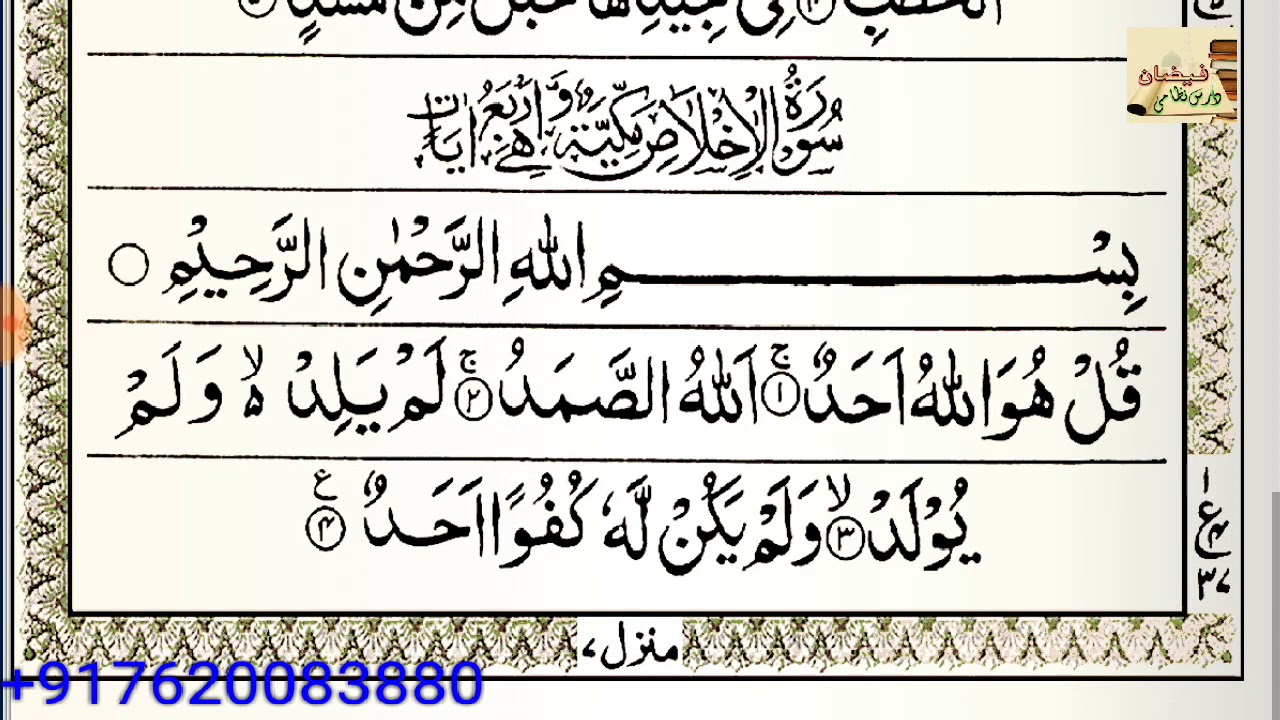 الْحَطَبِ ﴿۴﴾ فِیْ جِیْدِهَا حَبْلٌ مِّنْ مَّسَدٍ ﴿۵﴾
فیضان
دارس نظامی
سُوْرَةُ الْاِخْلَاصِ مَكِّيَّةٌ وَّ هِیَ اَرْبَعُ اٰیَاتٍ
بِسْمِ اللهِ الرَّحْمٰنِ الرَّحِیْمِ ○
قُلْ هُوَ اللهُ اَحَدٌ ۚ﴿۱﴾ اَللهُ الصَّمَدُ ۚ﴿۲﴾ لَمْ یَلِدْ ۙ۬ وَلَمْ
یُوْلَدْ ۙ﴿۳﴾ وَلَمْ یَكُنْ لَّهٗ كُفُوًا اَحَدٌ ﴿۴﴾ ع
۱
ع
۳۷
منزل ۷
+917620083880